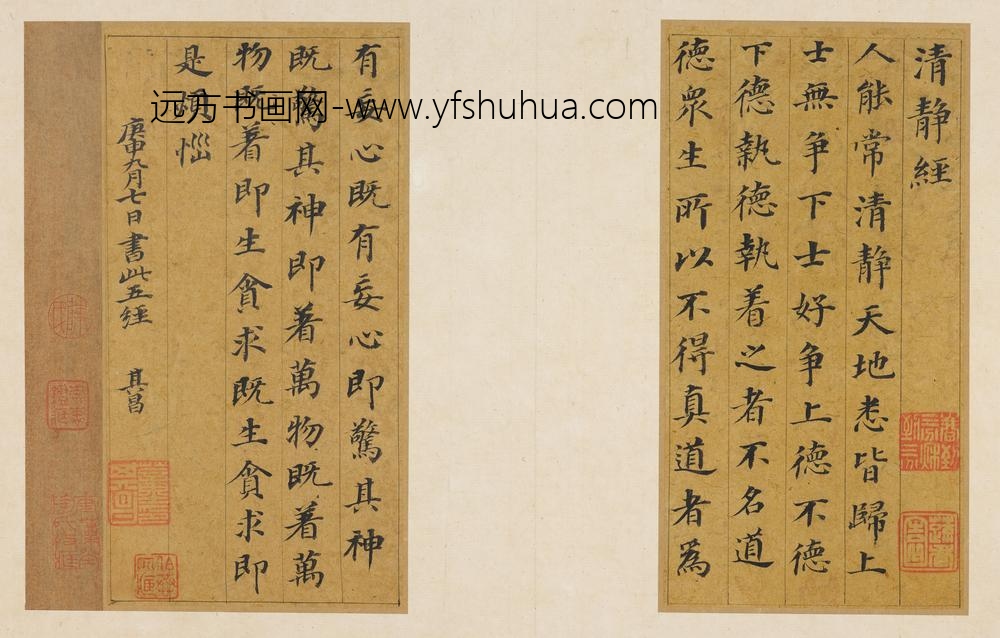 清静經
人能常清靜天地悉皆歸上
士無爭下士好爭上德不德
下德執德執着之者不名道
德眾生所以不得真道者為
有妄心既有妄心即驚其神
既驚其神即著萬物既着萬
物既著即生貪求既生貪求即
是煩惱
庚申九月七日書此五經 其昌
远方书画网-www.yfshuhua.com